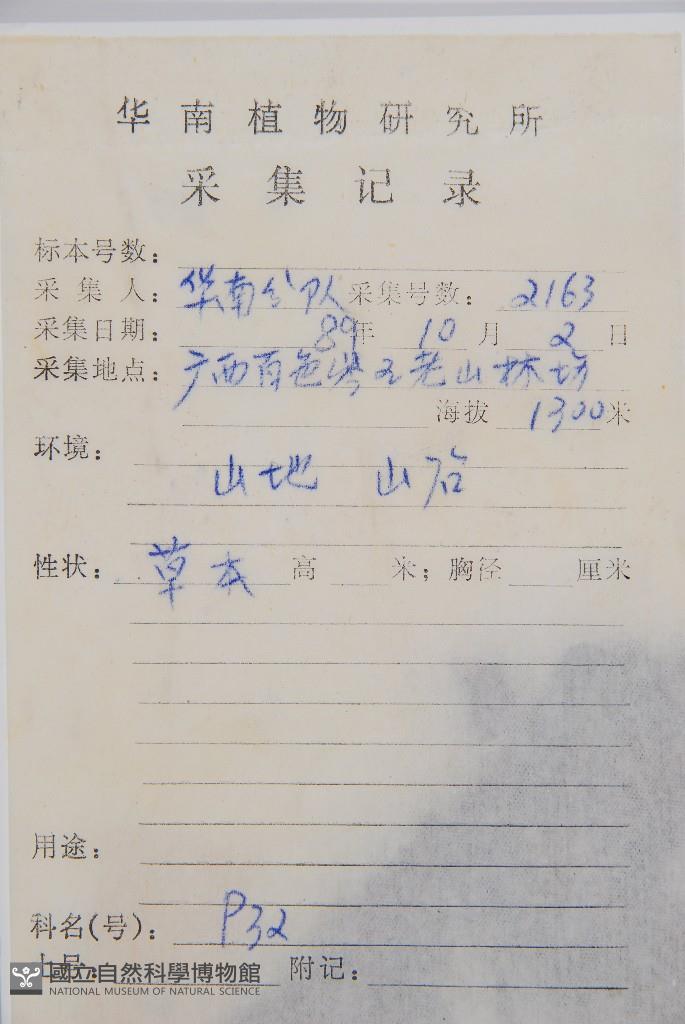 华南植物研究所
采集记录
标本号数：
采集人：华南分队 采集号数：2163
采集日期：89年10月2日
采集地点：广西百色岑王老山林场
海拔 1300米
环境：
山地 山谷
性状：草本 高 米；胸径 厘米
用途：
科名(号)：P32
附记：
國立自然科學博物館
NATIONAL MUSEUM OF NATURAL SCIENCE